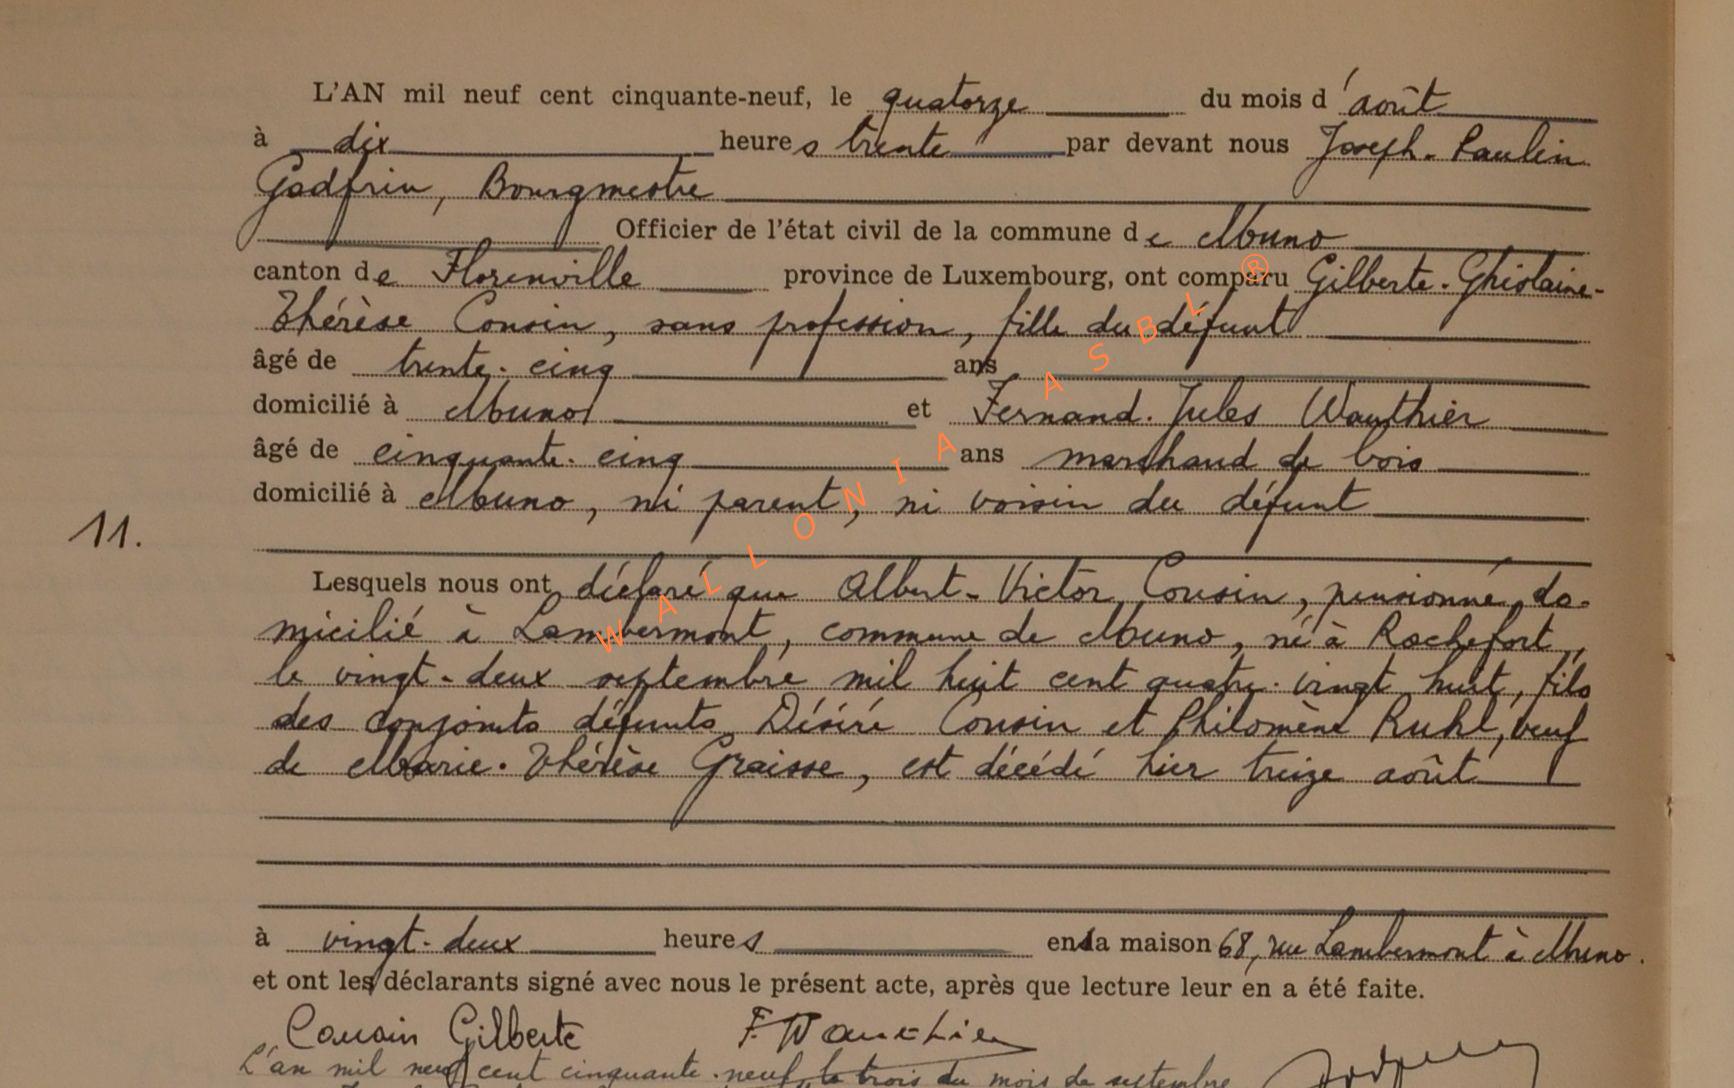 L'AN mil neuf cent cinquante-neuf, le quatorze du mois d'août
à dix heures trente par devant nous Joseph-Paulin
Godfrin, Bourgmestre
Officier de l'état civil de la commune de Muno
canton de Florenville province de Luxembourg, ont comparu Gilberte-Ghislaine-
Thérèse Cousin, sans profession, fille du défunt
âgé de trente-cinq ans
domicilié à Muno et Fernand-Jules Wauthier
âgé de cinquante-cinq ans marchand de bois
domicilié à Muno, ni parent, ni voisin du défunt
11.
Lesquels nous ont déclaré que Albert-Victor Cousin, pensionné, do-
micilié à Lambermont, commune de Muno, né à Rochefort,
le vingt-deux septembre mil huit cent quatre-vingt huit, fils
des conjoints défunts Désiré Cousin et Philomène Ruhl, veuf
de Marie-Thérèse Graisse, est décédé hier treize août
à vingt-deux heures en la maison 68, rue Lambermont à Muno.
et ont les déclarants signé avec nous le présent acte, après que lecture leur en a été faite.
Cousin Gilberte F. Wauthier
L'an mil neuf cent cinquante-neuf, le trois du mois de septembre
WALLONIA ASBL ®